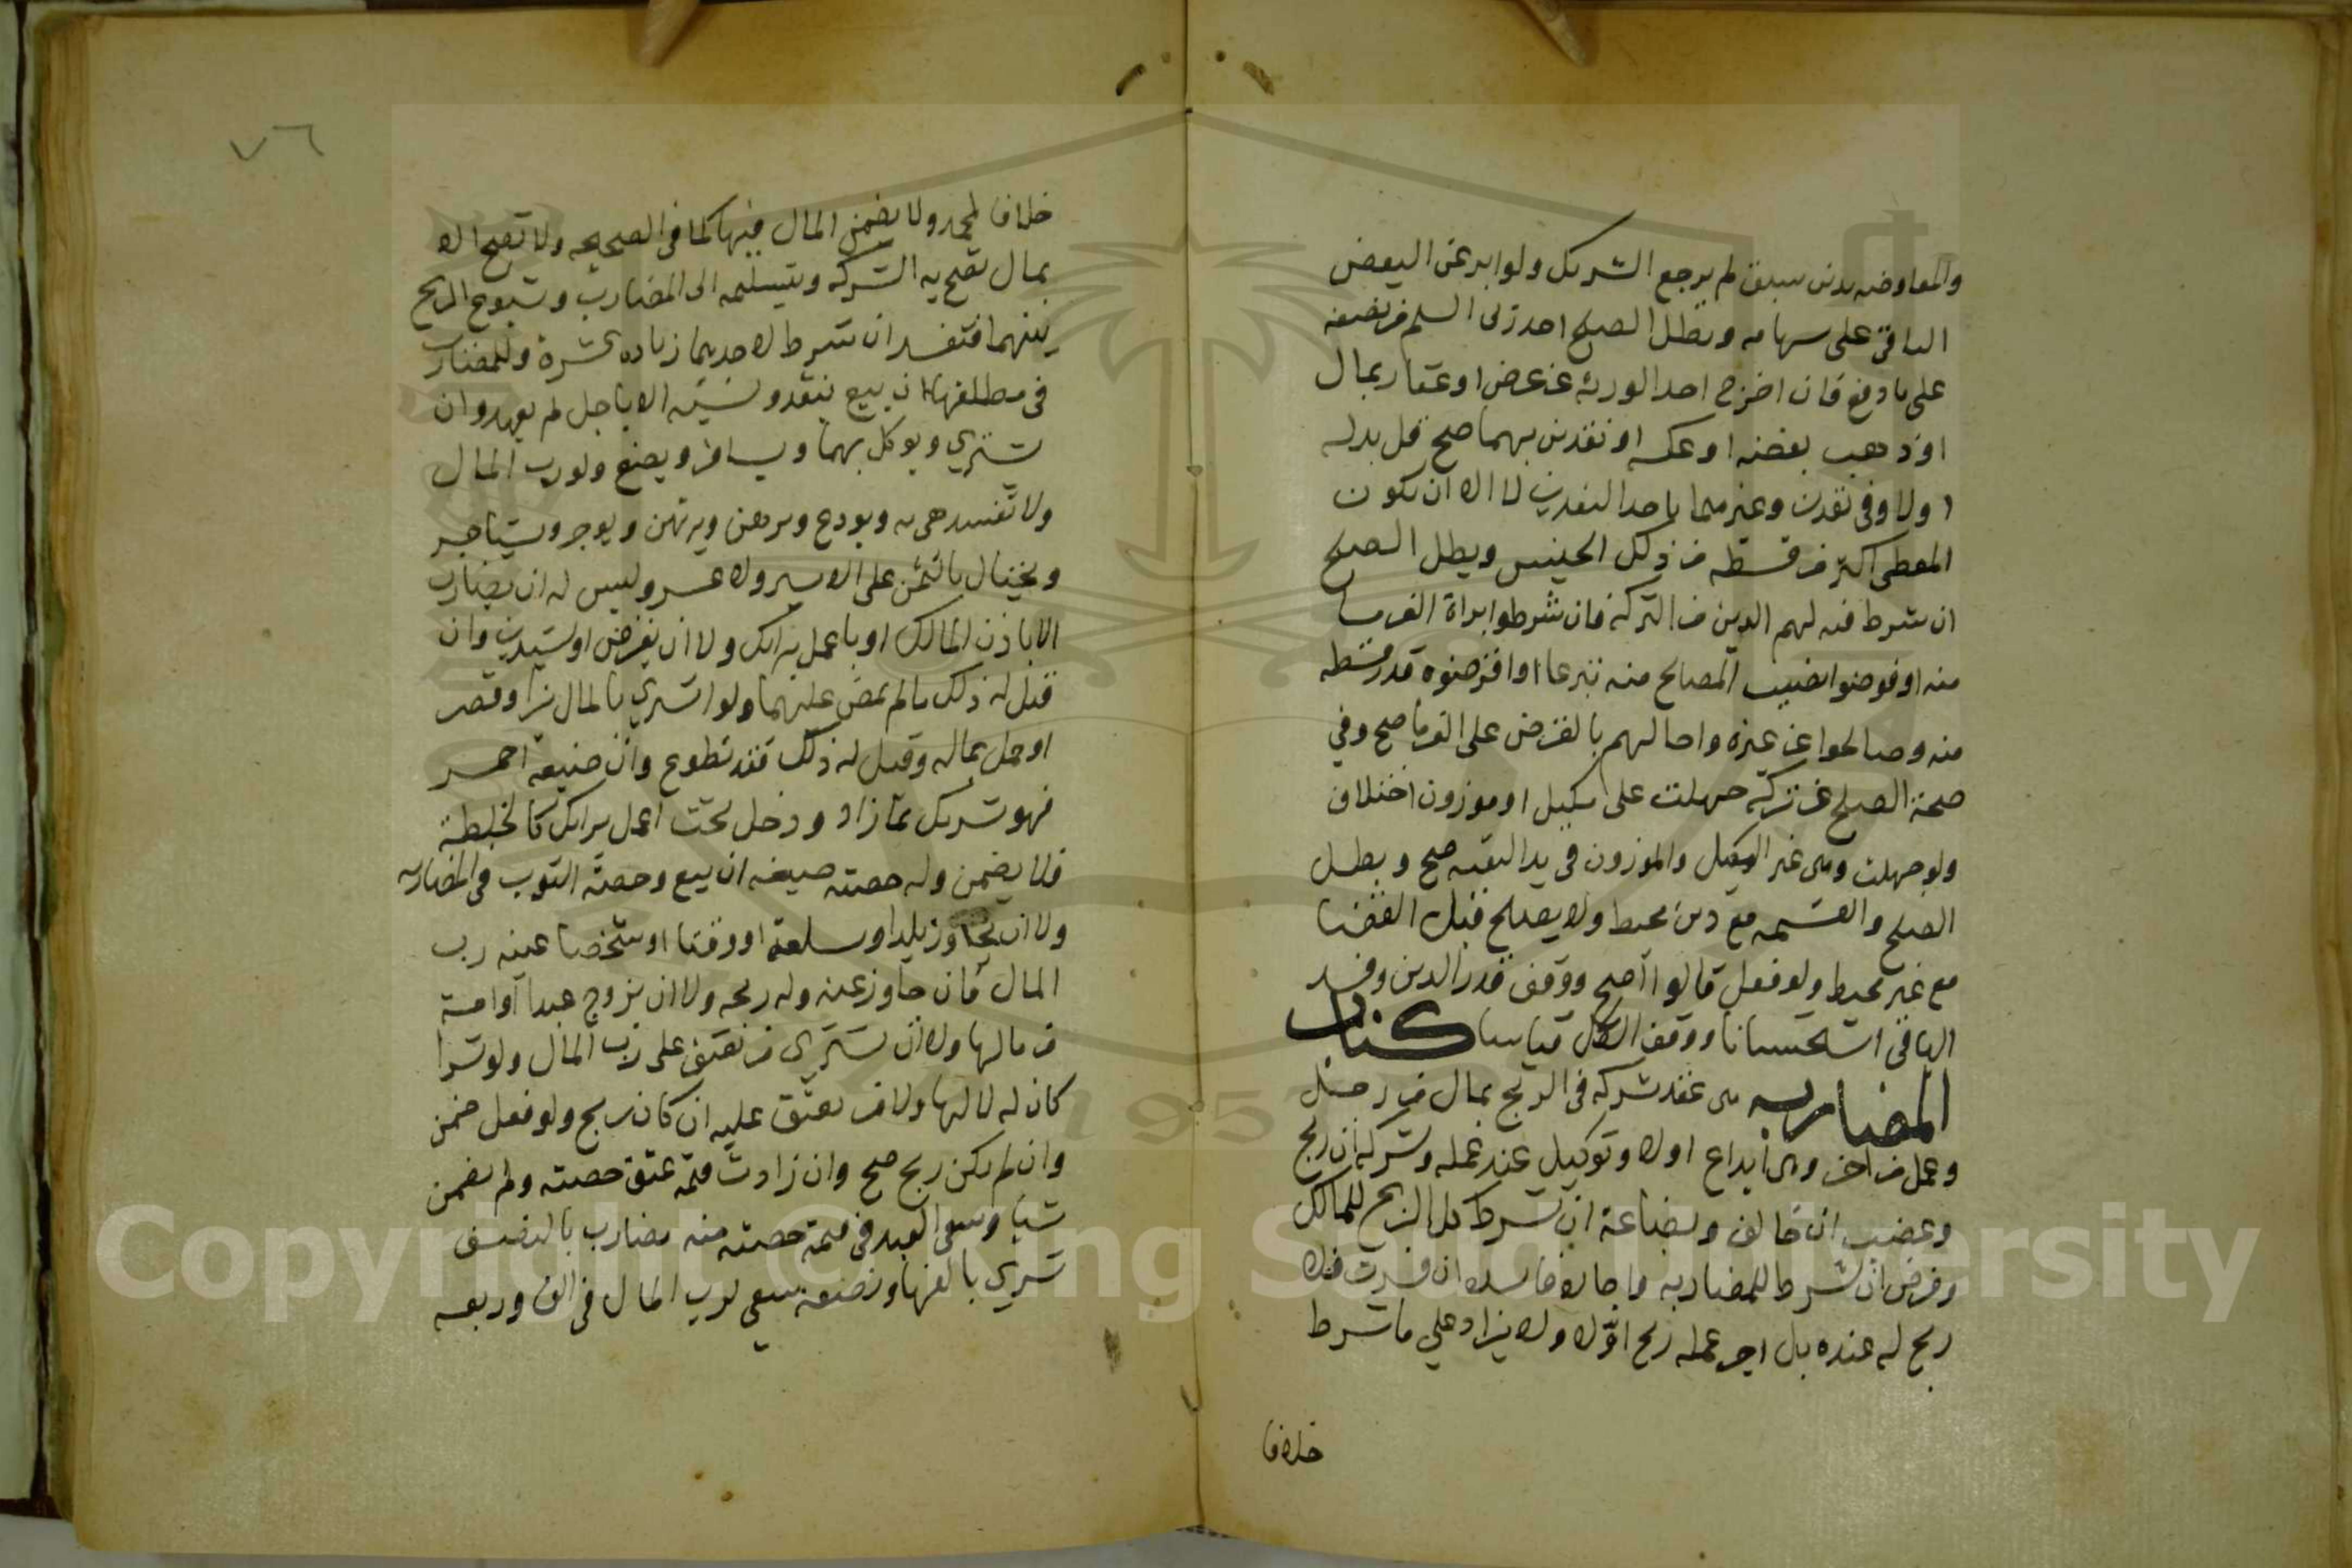 والمعاوضه بدين سبق لم يرجع الشريك ولو ابرء عن البعض
الباقي على سهامه وبطل الصلح احد ربى السلم من نصفه
على ما دفع فان اخرج احد الورثه عن عرض او عقار بمال
او ذهب بفضه او عكسه او نقدين بهما صح قل بدله
اولا وفي نقدين وغيرهما باحد النقدين لا الا ان يكون
المعطى اكثر من قسطه من ذلك الجنس وبطل الصلح
ان شرط فيه لهم الدين من التركه فان شرطوا براة الغرما
منه او قوضوا نصيب المصالح منه تبرعا او اقرضوه قدر قسطه
منه وصالحوا عن غيره واحالهم بالقرض على الغرما صح وفي
صحة الصلح عن تركه جهلت على مكيل او موزون اختلاف
ولو جهلت وهى غير المكيل والموزون في يد البقيه صح وبطل
الصلح والقسمه مع دين محيط ولا يصلح قبل القضا
مع غير محيط ولو فعل قالوا اصح ووقف قدر الدين وفسد
الباقي استحسانا ووقف الكل قياسا كتاب
المضاربه هى عقد شركه في الربح بمال من رجل
وعمل من اخر وهى ايداع اولا وتوكيل عند عمله وشركه ان ربح
وغصب ان خالف وبضاعة ان شرط كل الربح للمالك
وقرض ان شرط للمضاربه واجاره فاسده ان فسدت فلا
ربح له عنده بل اجر عمله ربح اولا ولا يزاد على ما شرط
خلافا
٧٦
خلافا لمحمد ولا يضمن المال فيها كما في الصحيحه ولا تصح الا
بمال تصح به الشركه وبتسليمه الى المضارب وشيوع الربح
بينهما فتفسد ان شرط لاحدهما زيادة عشرة وللمضارب
في مطلقها ان يبيع بنقد ونسيئه الا باجل لم يعهد وان
يشتري ويوكل بهما ويسافر ويبضع ولو رب المال
ولا تفسد هى به ويودع ويرهن ويرتهن ويوجر ويستاجر
ويحتال بالثمن على الايسر والاعسر وليس له ان يضارب
الا باذن المالك او باعمل برايك ولا ان يقرض او يستدين وان
قيل له ذلك ما لم يمض عليهما ولو اشترى بالمال بزا وقصر
او حمل بماله وقيل له ذلك فقد تطوع وان صبغه احمر
فهو شريك بما زاد ودخل تحت اعمل برايك كالخلطة
فلا يضمن وله حصته صبغه ان بيع وحصة الثوب في المضاربه
ولا ان يجاوز بلدا وسلعة او وقتا او شخصا عينه رب
المال فان جاوز عنه وله ربحه ولا ان يزوج عبدا او امة
من مالها ولا ان يشترى من يعتق على رب المال ولو شرا
كان له لا لها ولا من يعتق عليه ان كان ربح ولو فعل ضمن
وان لم يكن ربح صح وان زادت قيمته عتق حصته ولم يضمن
شيا وسعى العبد في قيمة حصته منه مضارب بالنصف
شرى بالفها ونصفه سعى لرب المال في الف وربعه